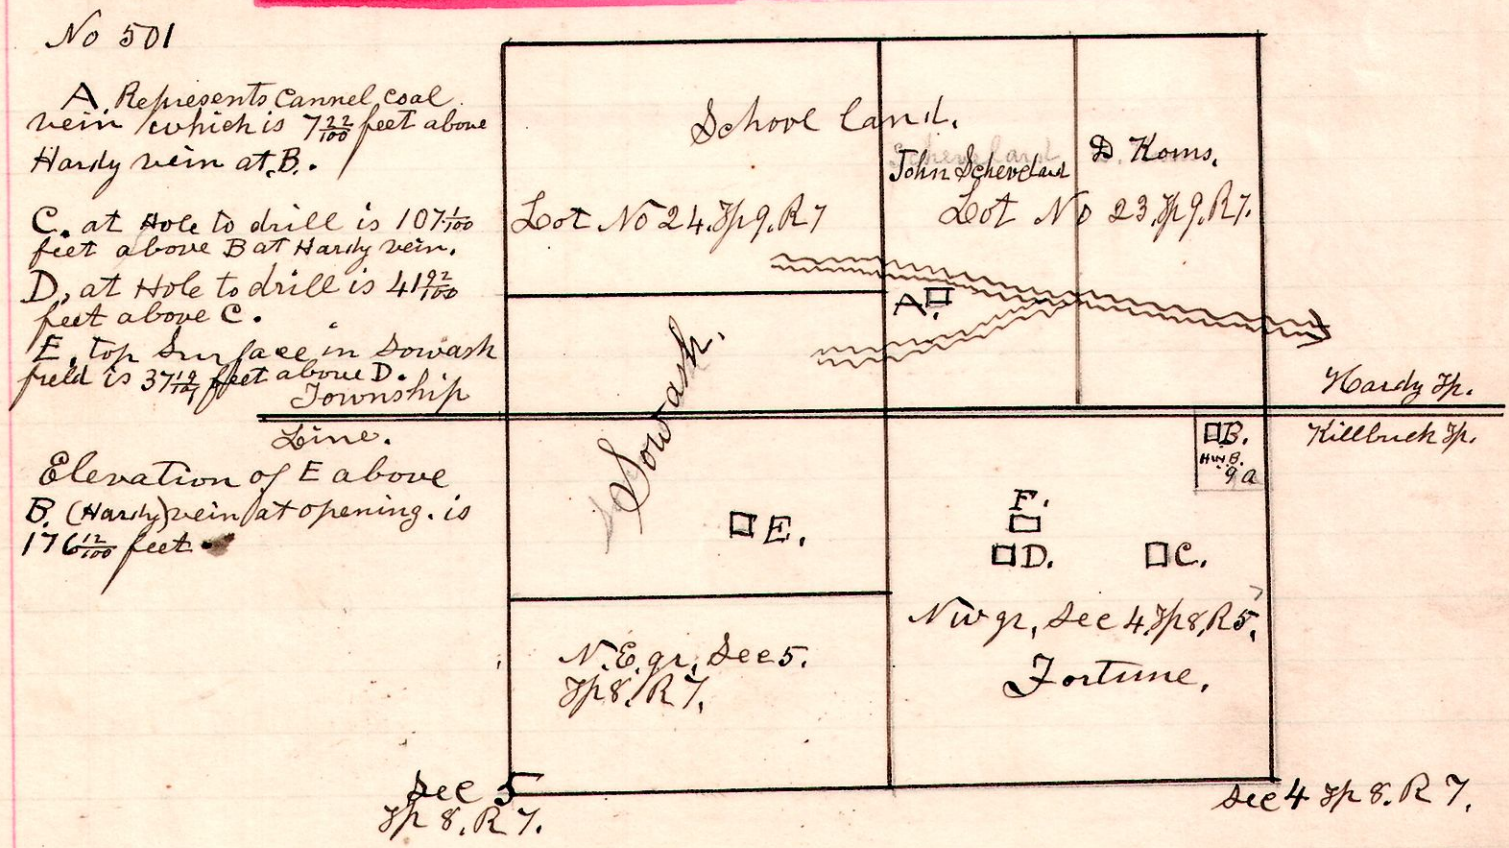 No 501
A. Represents Cannel coal
vein which is 7 22/100 feet above
Hardy vein at B.
C. at Hole to drill is 107 1/100
feet above B at Hardy vein.
D, at Hole to drill is 41 92/100
feet above C.
E, top Surface in Sowash
field is 37 19/100 feet above D.
Township
Line.
Elevation of E above
B. (Hardy) vein at opening. is
176 12/100 feet.
School land.
Lot No 24. Tp 9. R 7
John Scheveland
D Koms.
Lot No 23. Tp 9. R 7.
A.
Sowash.
Hardy Tp.
Killbuck Tp.
B.
H.W.B.
9 a
F.
D.
C.
E.
N W qr, Sec 4, Tp 8, R 5,
7
Fortune.
N. E. qr, Sec 5.
Tp 8. R 7.
Sec 5
Tp 8. R 7.
Sec 4 Tp 8. R 7.